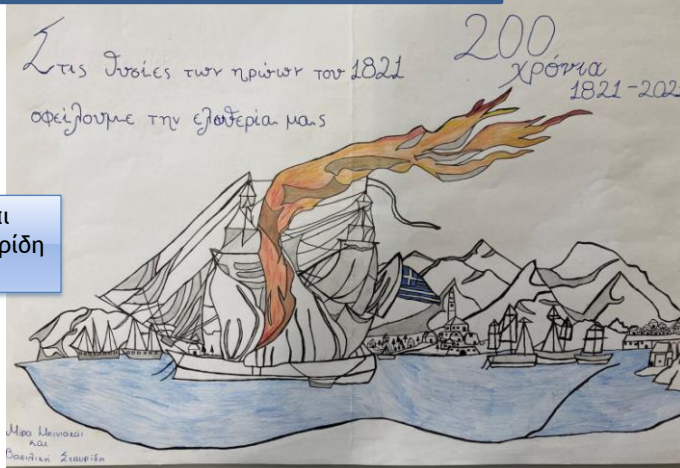 Στις θυσίες των ηρώων του 1821
οφείλουμε την ελευθερία μας
200
χρόνια
1821-202
ρίδη
Μιρα
και
Βασιλική Σταυρίδη